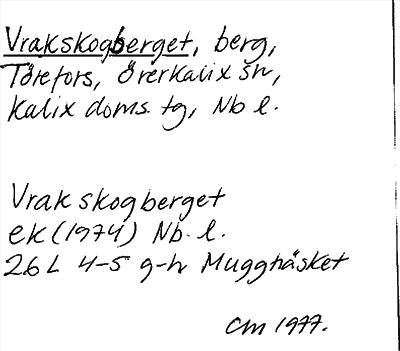 Vrakskogberget, berg,
Törefors, Överkalix sn,
Kalix doms. tg, Nb l.
Vrakskogberget
ek (1974) Nb. l.
26L 4-5 g-h Mugghäsket
CM 1977.